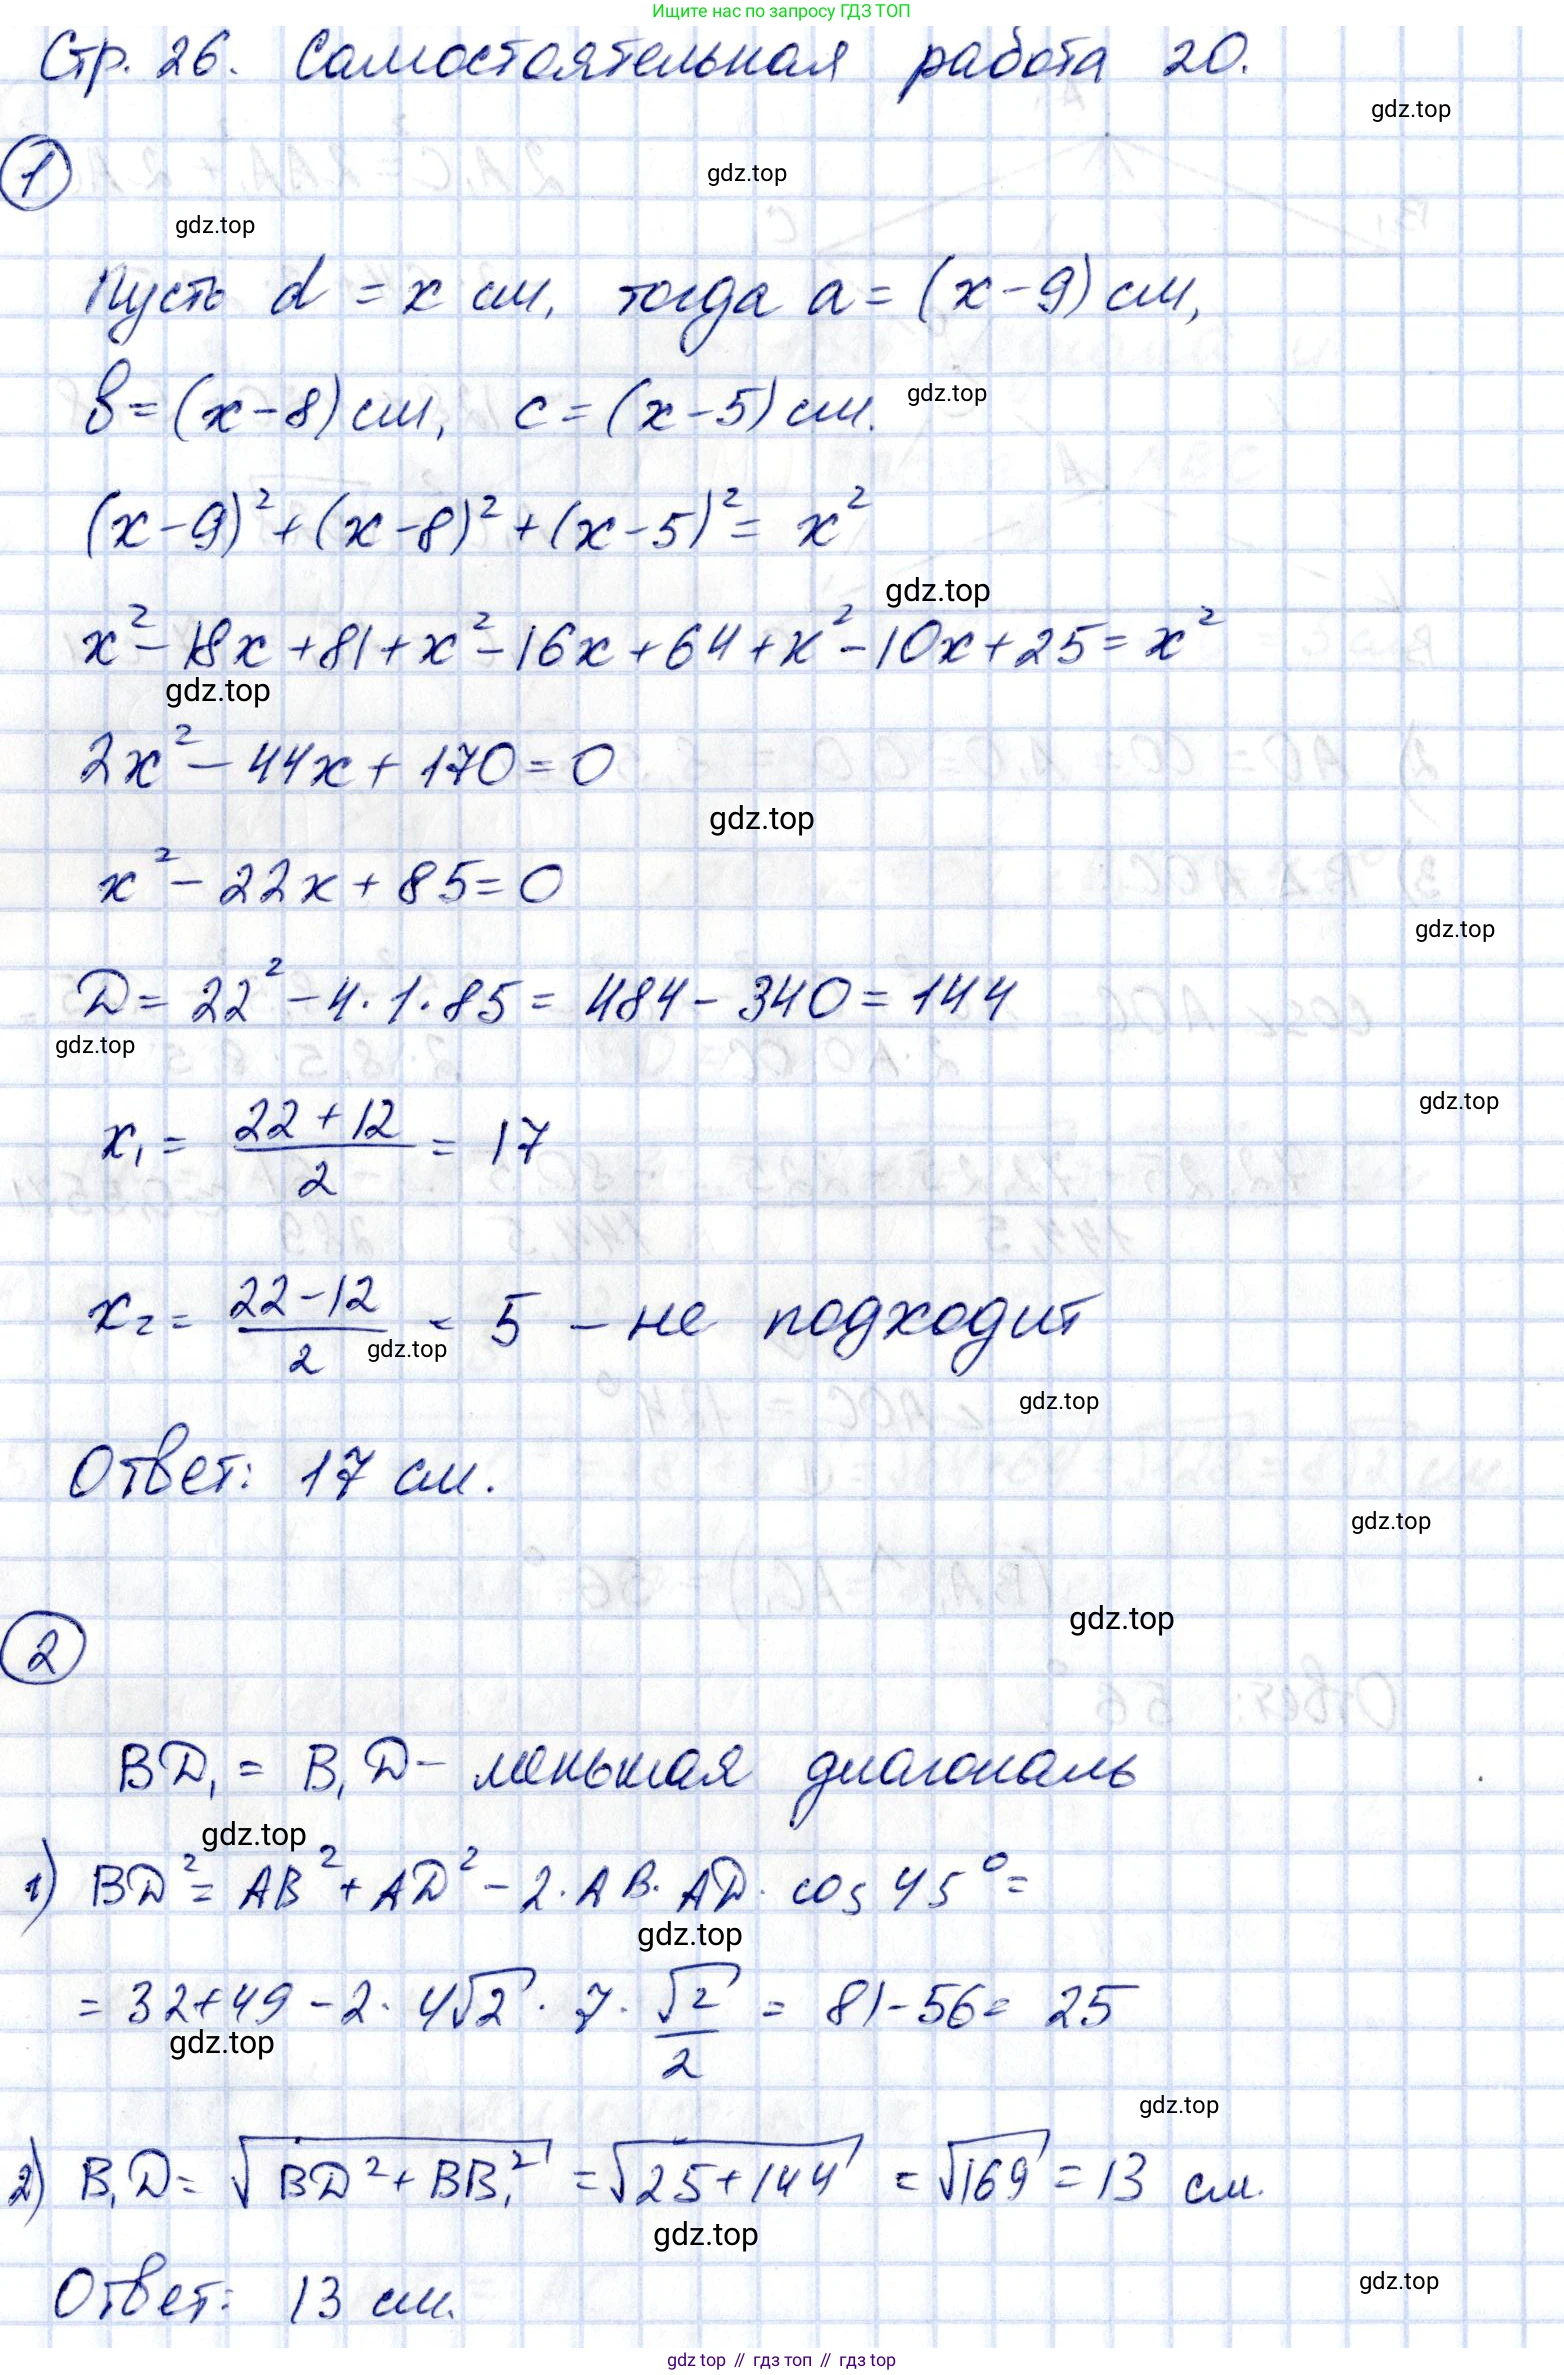 Ищите нас по запросу ГДЗ ТОП
Стр. 26. Самостоятельная работа 20.
gdz.top
1
gdz.top
gdz.top
Пусть d = x см, тогда a = (x - 9) см,
b = (x - 8) см, c = (x - 5) см.
gdz.top
(x - 9)² + (x - 8)² + (x - 5)² = x²
gdz.top
x² - 18x + 81 + x² - 16x + 64 + x² - 10x + 25 = x²
gdz.top
2x² - 44x + 170 = 0
gdz.top
x² - 22x + 85 = 0
gdz.top
D = 22² - 4 · 1 · 85 = 484 - 340 = 144
gdz.top
gdz.top
x₁ = (22 + 12)/2 = 17
x₂ = (22 - 12)/2 = 5 - не подходит
gdz.top
gdz.top
Ответ: 17 см.
gdz.top
gdz.top
2
BD₁ = B₁D - меньшая диагональ
gdz.top
1) BD² = AB² + AD² - 2 · AB · AD · cos 45° =
gdz.top
= 32 + 49 - 2 · 4√2 · 7 · √2/2 = 81 - 56 = 25
gdz.top
gdz.top
2) B₁D = √(BD² + BB₁²) = √(25 + 144) = √169 = 13 см.
gdz.top
Ответ: 13 см.
gdz.top
gdz top // гдз топ // гдз top